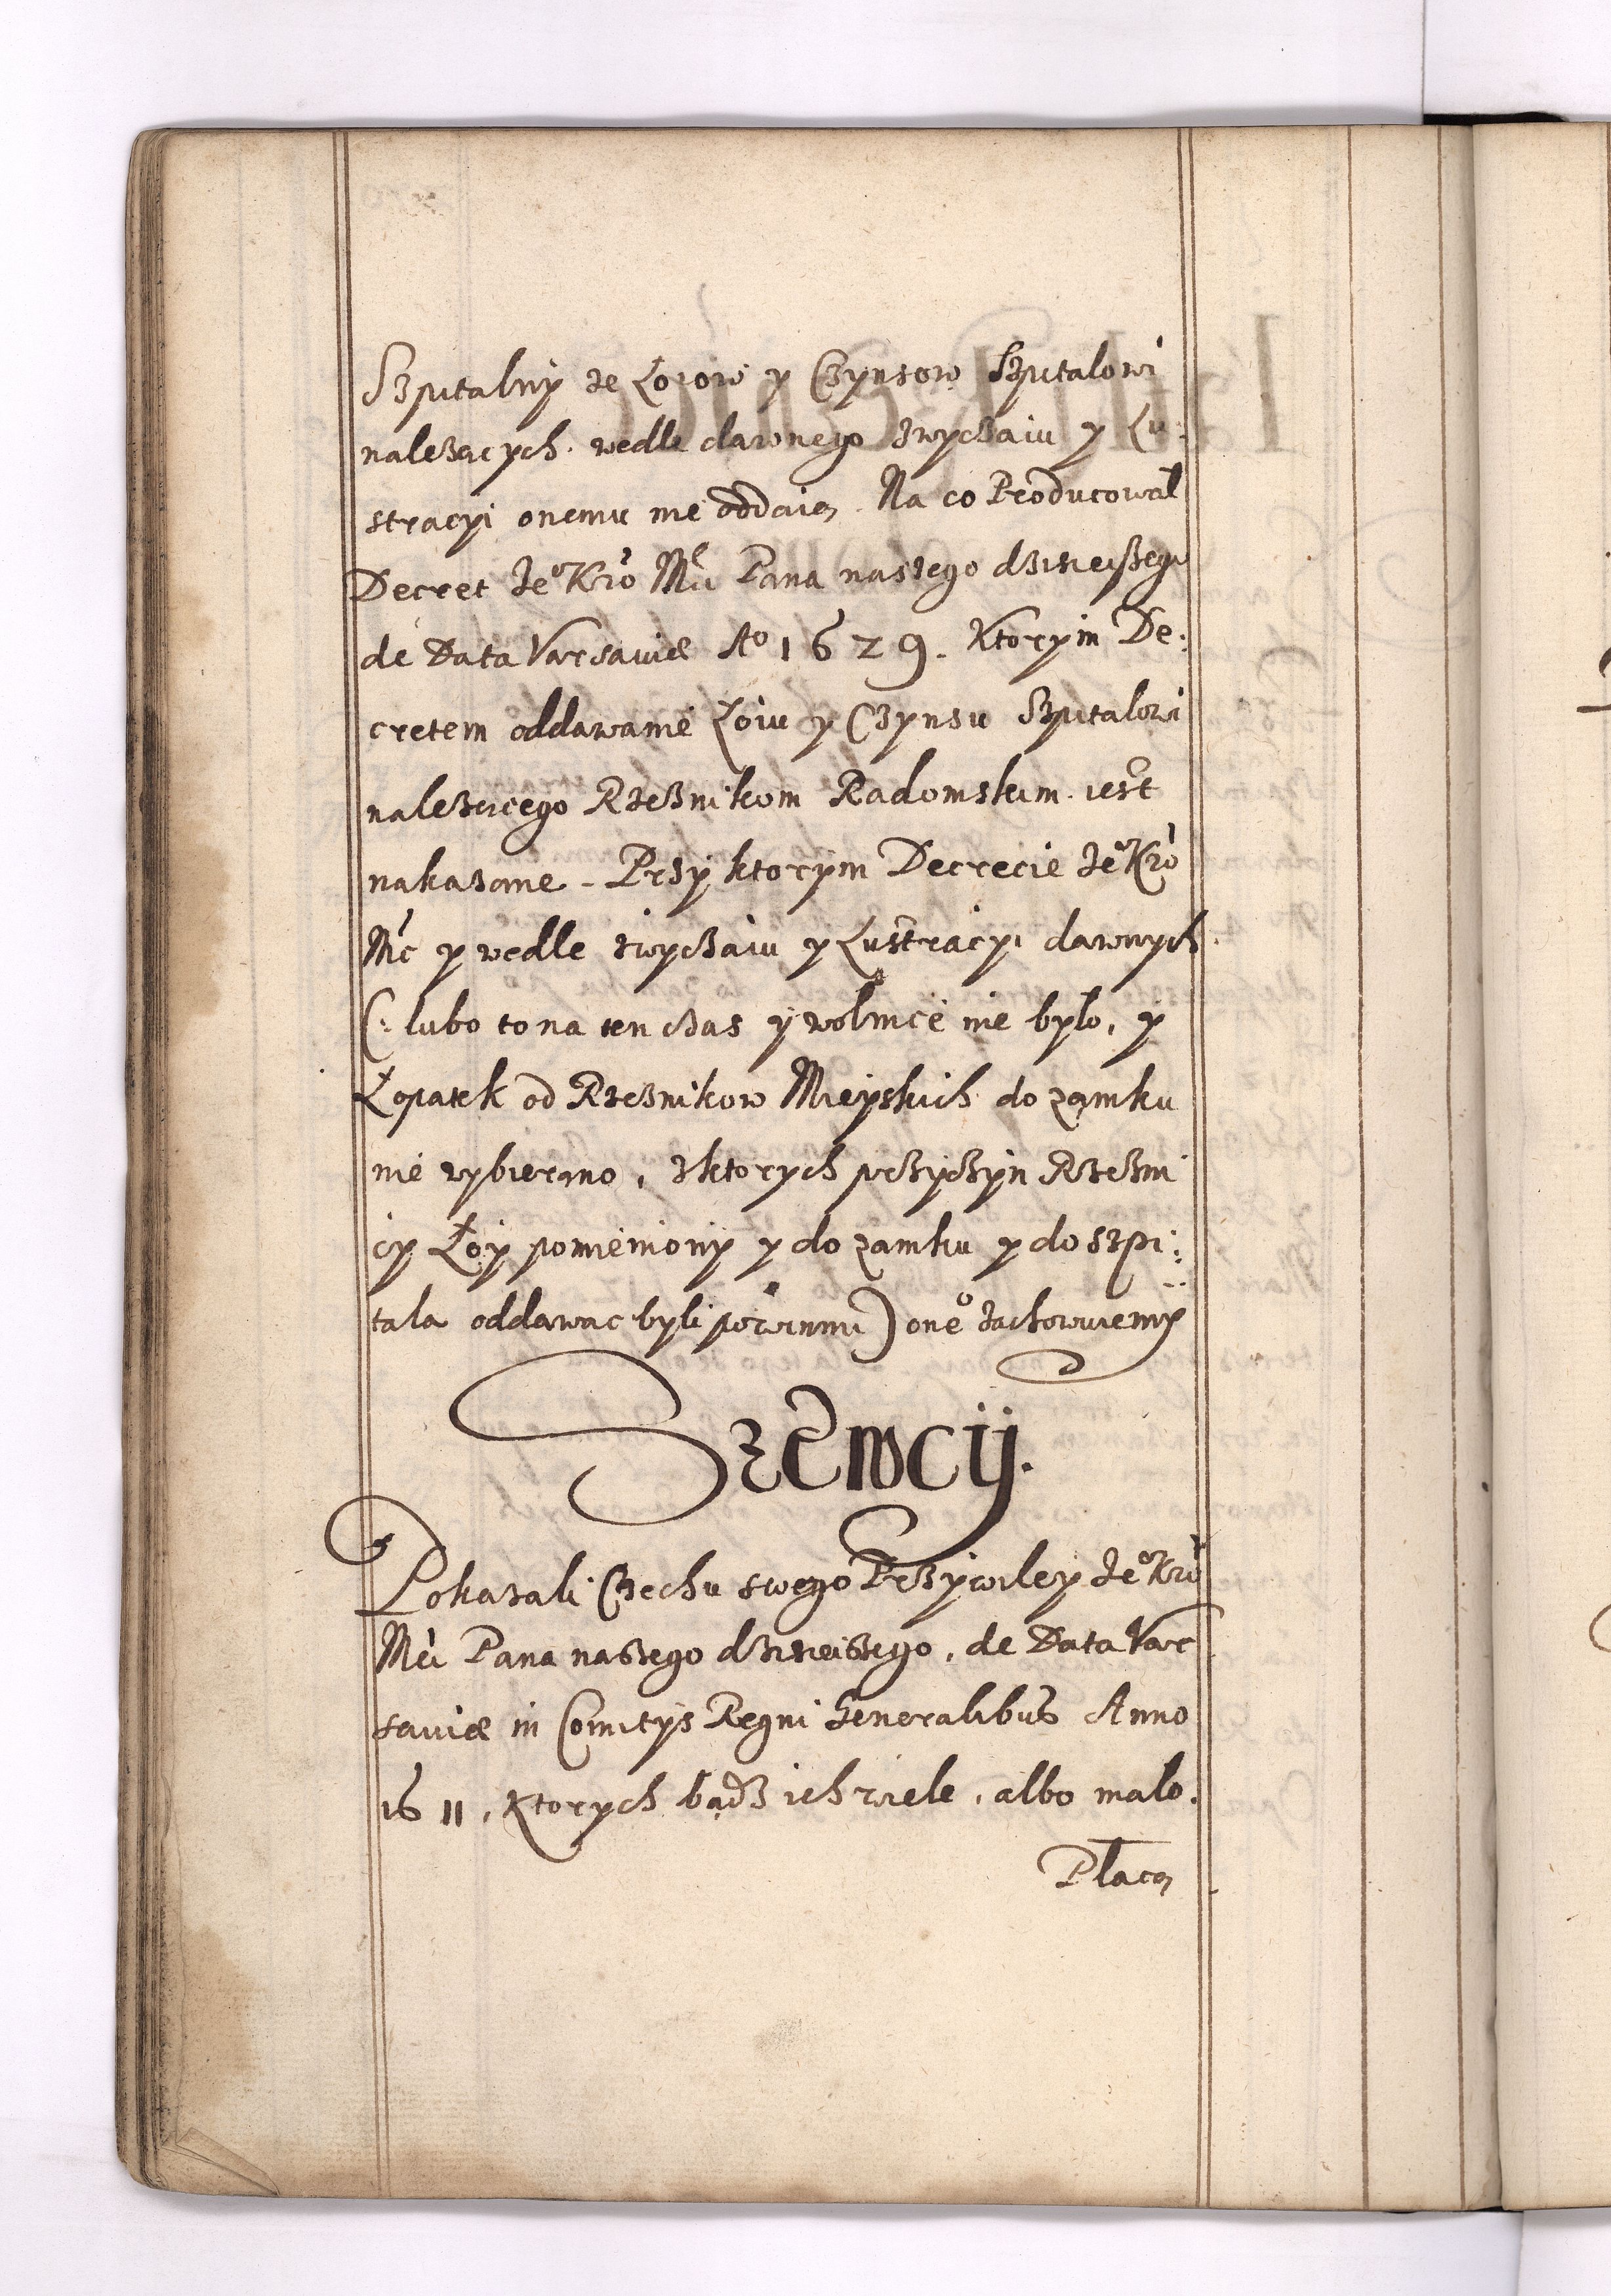 Szpitalny ze Łoiow y Czynsow Szpitalowi
należących. wedle dawnego zwyczaiu y Lu:
stracyi onemu nie oddaią. Na co Producował
Decret Je° Kro Mci Pana naszego dzisieiszego
de Data Varsaviæ A° 1629. Ktorym De:
cretem oddawanie Łoiu y Czynsu Szpitalowi
należącego Rzeznikom Radomskim iest
nakazane. Przy ktorym Decrecie Je° Kro
Mc y wedle zwyczaiu y Lustracyi dawnych.
(: lubo to na ten czas y wolnicé nie bylo, y
Łopatek od Rzeznikow Mieyskich do zamku
nie wybierano, z ktorych przyczyn Rzezni
cy Łoy pomieniony y do zamku y do Szpi:
tala oddawac byli powinni) one° zachowuiemy
Szewcÿ.
Pokazali Czechu swego Przywiley Je° Kro
Mci Pana naszego dzisieiszego, de Data Var
saviæ in Comitÿs Regni Generalibus Anno
1611, Ktorych bądz ich wiele, albo malo.
Płacą